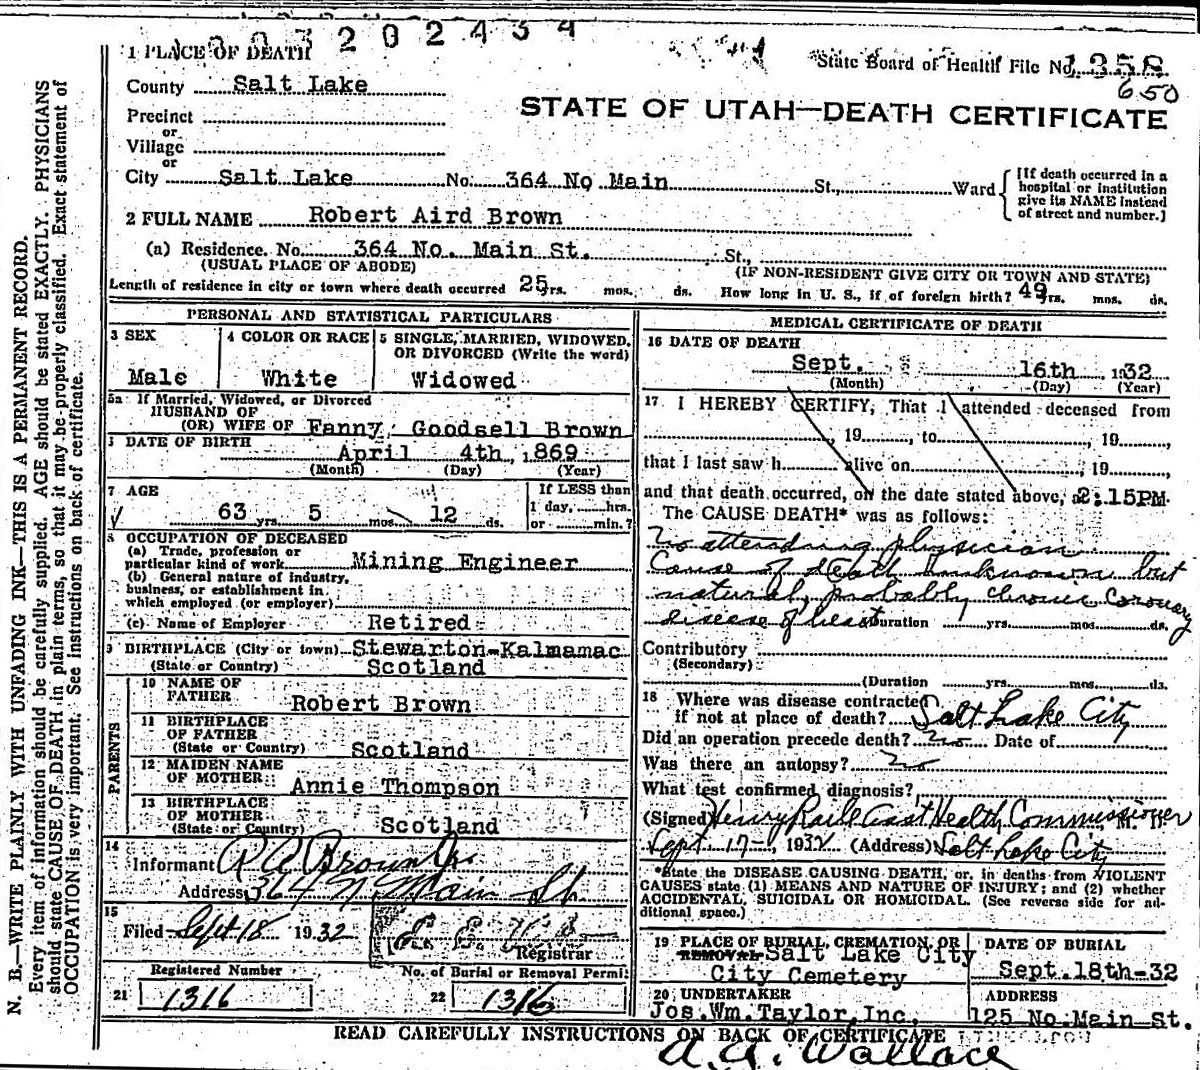 3 2 0 2 4 3 4
1 PLACE OF DEATH
State Board of Health File No. 1358
650
County Salt Lake
STATE OF UTAH—DEATH CERTIFICATE
Precinct
or
Village
or
City Salt Lake No. 364 No Main St., Ward
[If death occurred in a hospital or institution give its NAME instead of street and number.]
2 FULL NAME Robert Aird Brown
(a) Residence. No. 364 No. Main St. St.,
(USUAL PLACE OF ABODE) (IF NON-RESIDENT GIVE CITY OR TOWN AND STATE)
Length of residence in city or town where death occurred 25 yrs. mos. ds. How long in U. S., if of foreign birth? 49 yrs. mos. ds.
PERSONAL AND STATISTICAL PARTICULARS
3 SEX
Male
4 COLOR OR RACE
White
5 SINGLE, MARRIED, WIDOWED,
OR DIVORCED (Write the word)
Widowed
5a If Married, Widowed, or Divorced
HUSBAND OF
(OR) WIFE OF Fanny Goodsell Brown
DATE OF BIRTH
April 4th, 1869
(Month) (Day) (Year)
7 AGE
63 yrs. 5 mos. 12 ds.
If LESS than
1 day, hrs.
or min.?
8 OCCUPATION OF DECEASED
(a) Trade, profession or
particular kind of work Mining Engineer
(b) General nature of industry,
business, or establishment in
which employed (or employer)
(c) Name of Employer Retired
9 BIRTHPLACE (City or town) Stewarton-Kalmamac
(State or Country) Scotland
PARENTS
10 NAME OF
FATHER Robert Brown
11 BIRTHPLACE
OF FATHER
(State or Country) Scotland
12 MAIDEN NAME
OF MOTHER Annie Thompson
13 BIRTHPLACE
OF MOTHER
(State or Country) Scotland
14
Informant R A Brown Jr.
Address 364 N Main St
15
Filed Sept 18 1932
Registrar
Registered Number
21 1316
No. of Burial or Removal Permit
22 1316
MEDICAL CERTIFICATE OF DEATH
16 DATE OF DEATH
Sept. 16th 1932
(Month) (Day) (Year)
17 I HEREBY CERTIFY, That I attended deceased from
, 19 , to , 19 ,
that I last saw h alive on , 19 ,
and that death occurred, on the date stated above, at 2:15PM
The CAUSE DEATH* was as follows:
No attending physician
Cause of death unknown but
natural, probably chronic coronary
disease of heart Duration yrs. mos. ds.
Contributory
(Secondary)
(Duration yrs. mos. ds.
18 Where was disease contracted
if not at place of death? Salt Lake City
Did an operation precede death? no Date of
Was there an autopsy? no
What test confirmed diagnosis?
(Signed) Henry Raile Asst Health Commissioner, M. D.
Sept 17-, 1932 (Address) Salt Lake City
*State the DISEASE CAUSING DEATH, or, in deaths from VIOLENT
CAUSES state (1) MEANS AND NATURE OF INJURY; and (2) whether
ACCIDENTAL, SUICIDAL OR HOMICIDAL. (See reverse side for ad-
ditional space.)
19 PLACE OF BURIAL, CREMATION, OR
REMOVAL Salt Lake City
City Cemetery
DATE OF BURIAL
Sept. 18th-32
20 UNDERTAKER
Jos. Wm. Taylor, Inc.
ADDRESS
125 No. Main St.
READ CAREFULLY INSTRUCTIONS ON BACK OF CERTIFICATE
A. A. Wallace
N. B.—WRITE PLAINLY WITH UNFADING INK—THIS IS A PERMANENT RECORD.
Every item of information should be carefully supplied. AGE should be stated EXACTLY. PHYSICIANS
should state CAUSE OF DEATH in plain terms, so that it may be properly classified. Exact statement of
OCCUPATION is very important. See instructions on back of certificate.